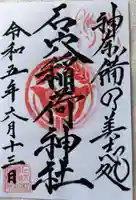 神宿備の美志苑
石穴稲荷神社
令和五年六月十三日